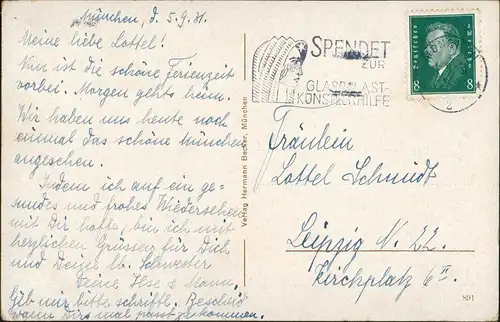 München, d. 5.9.31.
Meine liebe Lottel!
Nun ist die schöne Ferienzeit
vorbei. Morgen gehts heim.
Wir haben uns heute noch
einmal das schöne München
angesehen.
Indem ich auf ein ge-
sundes und frohes Wiedersehen
mit Dir hoffe, bin ich mit
herzlichen Grüssen für Dich
und Deine lb. Schwester
Deine Ilse u. Mann.
Gib mir bitte schriftl. Bescheid
wann Dirs mal passt zu kommen.
Verlag Hermann Becker, München
SPENDET
ZUR
GLASPALAST-
KÜNSTLERHILFE
Deutsches Reich
8 8
2
Fräulein
Lottel Schmidt
Leipzig N. 22.
Kirchplatz 6 II
801